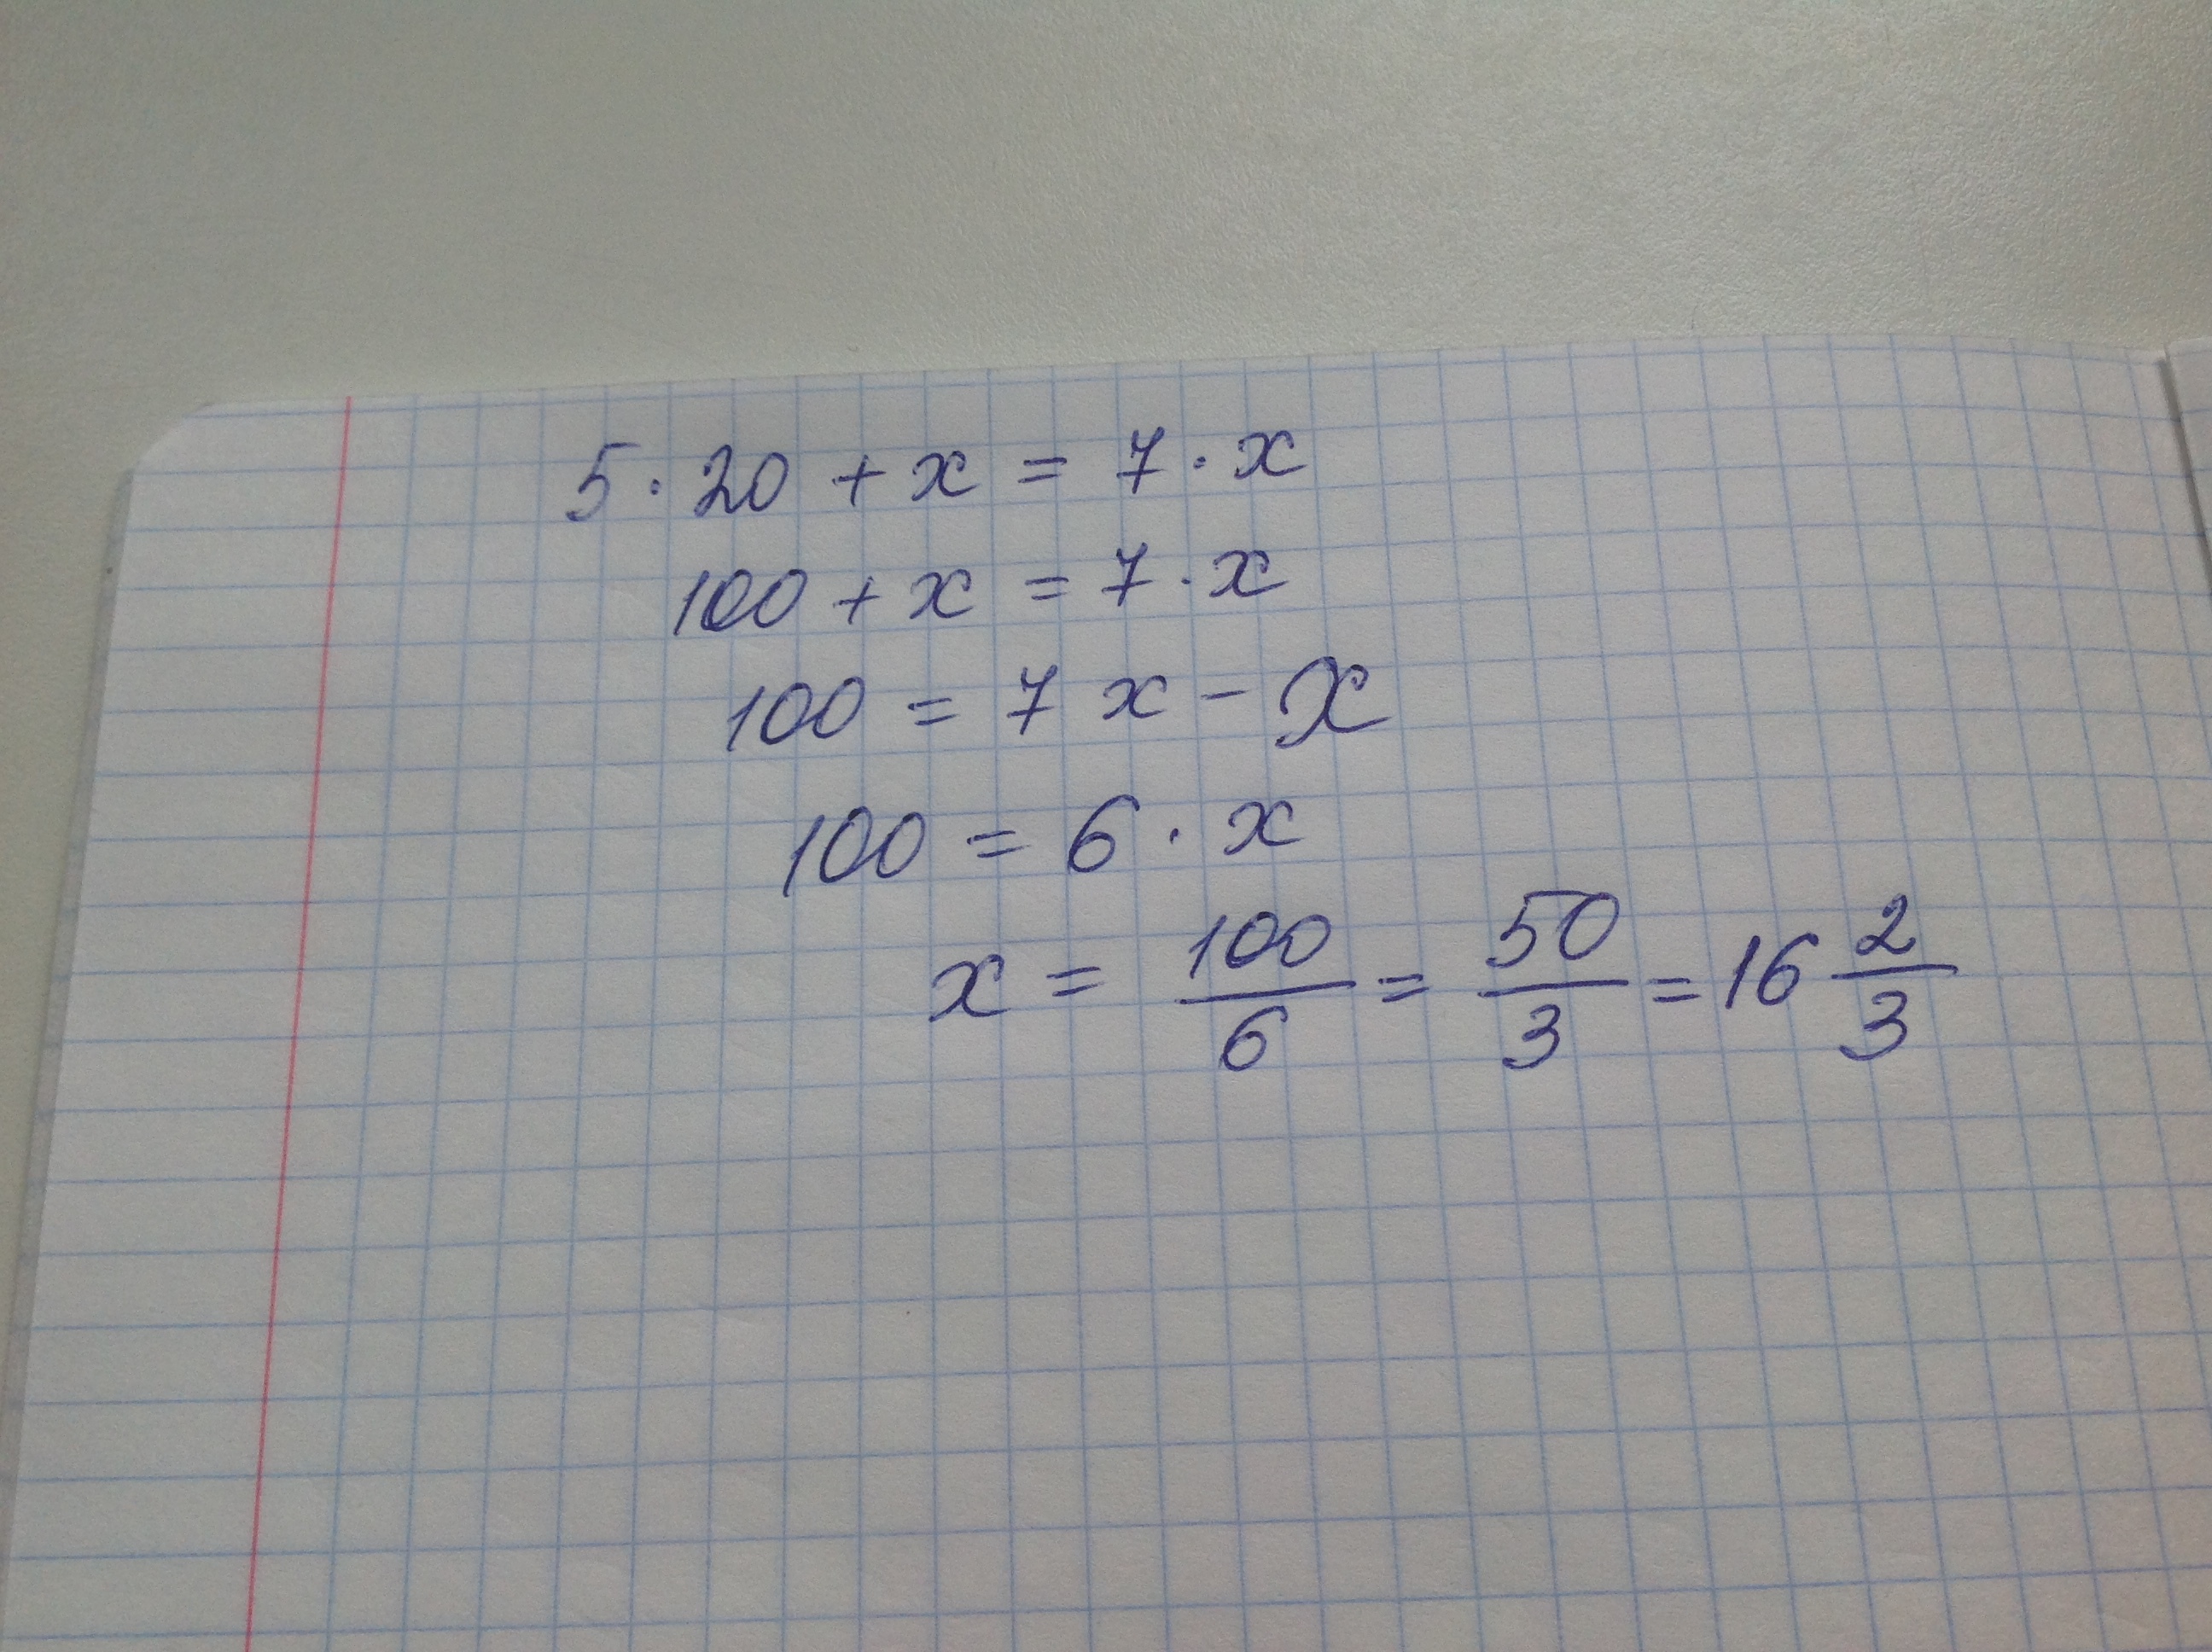 5 · 20 + x = 7 · x
100 + x = 7 · x
100 = 7 x - x
100 = 6 · x
x = 100/6 = 50/3 = 16 2/3